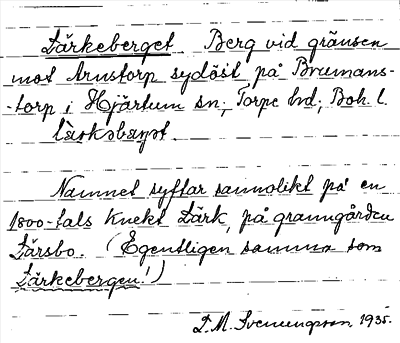 Lärkeberget. Berg vid gränsen
mot Arnstorp sydöst på Bremans-
-torp i Hjärtum sn; Torpe hd; Boh. l.
Namnet syftar sannolikt på en
1800-tals knekt Lärk, på granngården
Lärsbo. (Egentligen samma som
Lärkebergen!)
L. M. Svenungsson 1935.